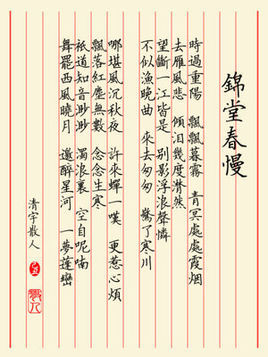 錦堂春慢
時過重陽 飄飄暮霧 青冥處處霞烟
去雁風悲 傾泪幾度潸然
望斷一江皆是 別影浮浪聲憐
不似漁晚曲 來去匆匆 驚了寒川
哪堪風沉秋夜 許來蟬一嘆 更惹心煩
飄落紅塵無數 念念生寒
祇道知音眇眇 濁浪裏 空自呢喃
舞罷西風曉月 邀醉星河 一夢蓬巒
清宇散人